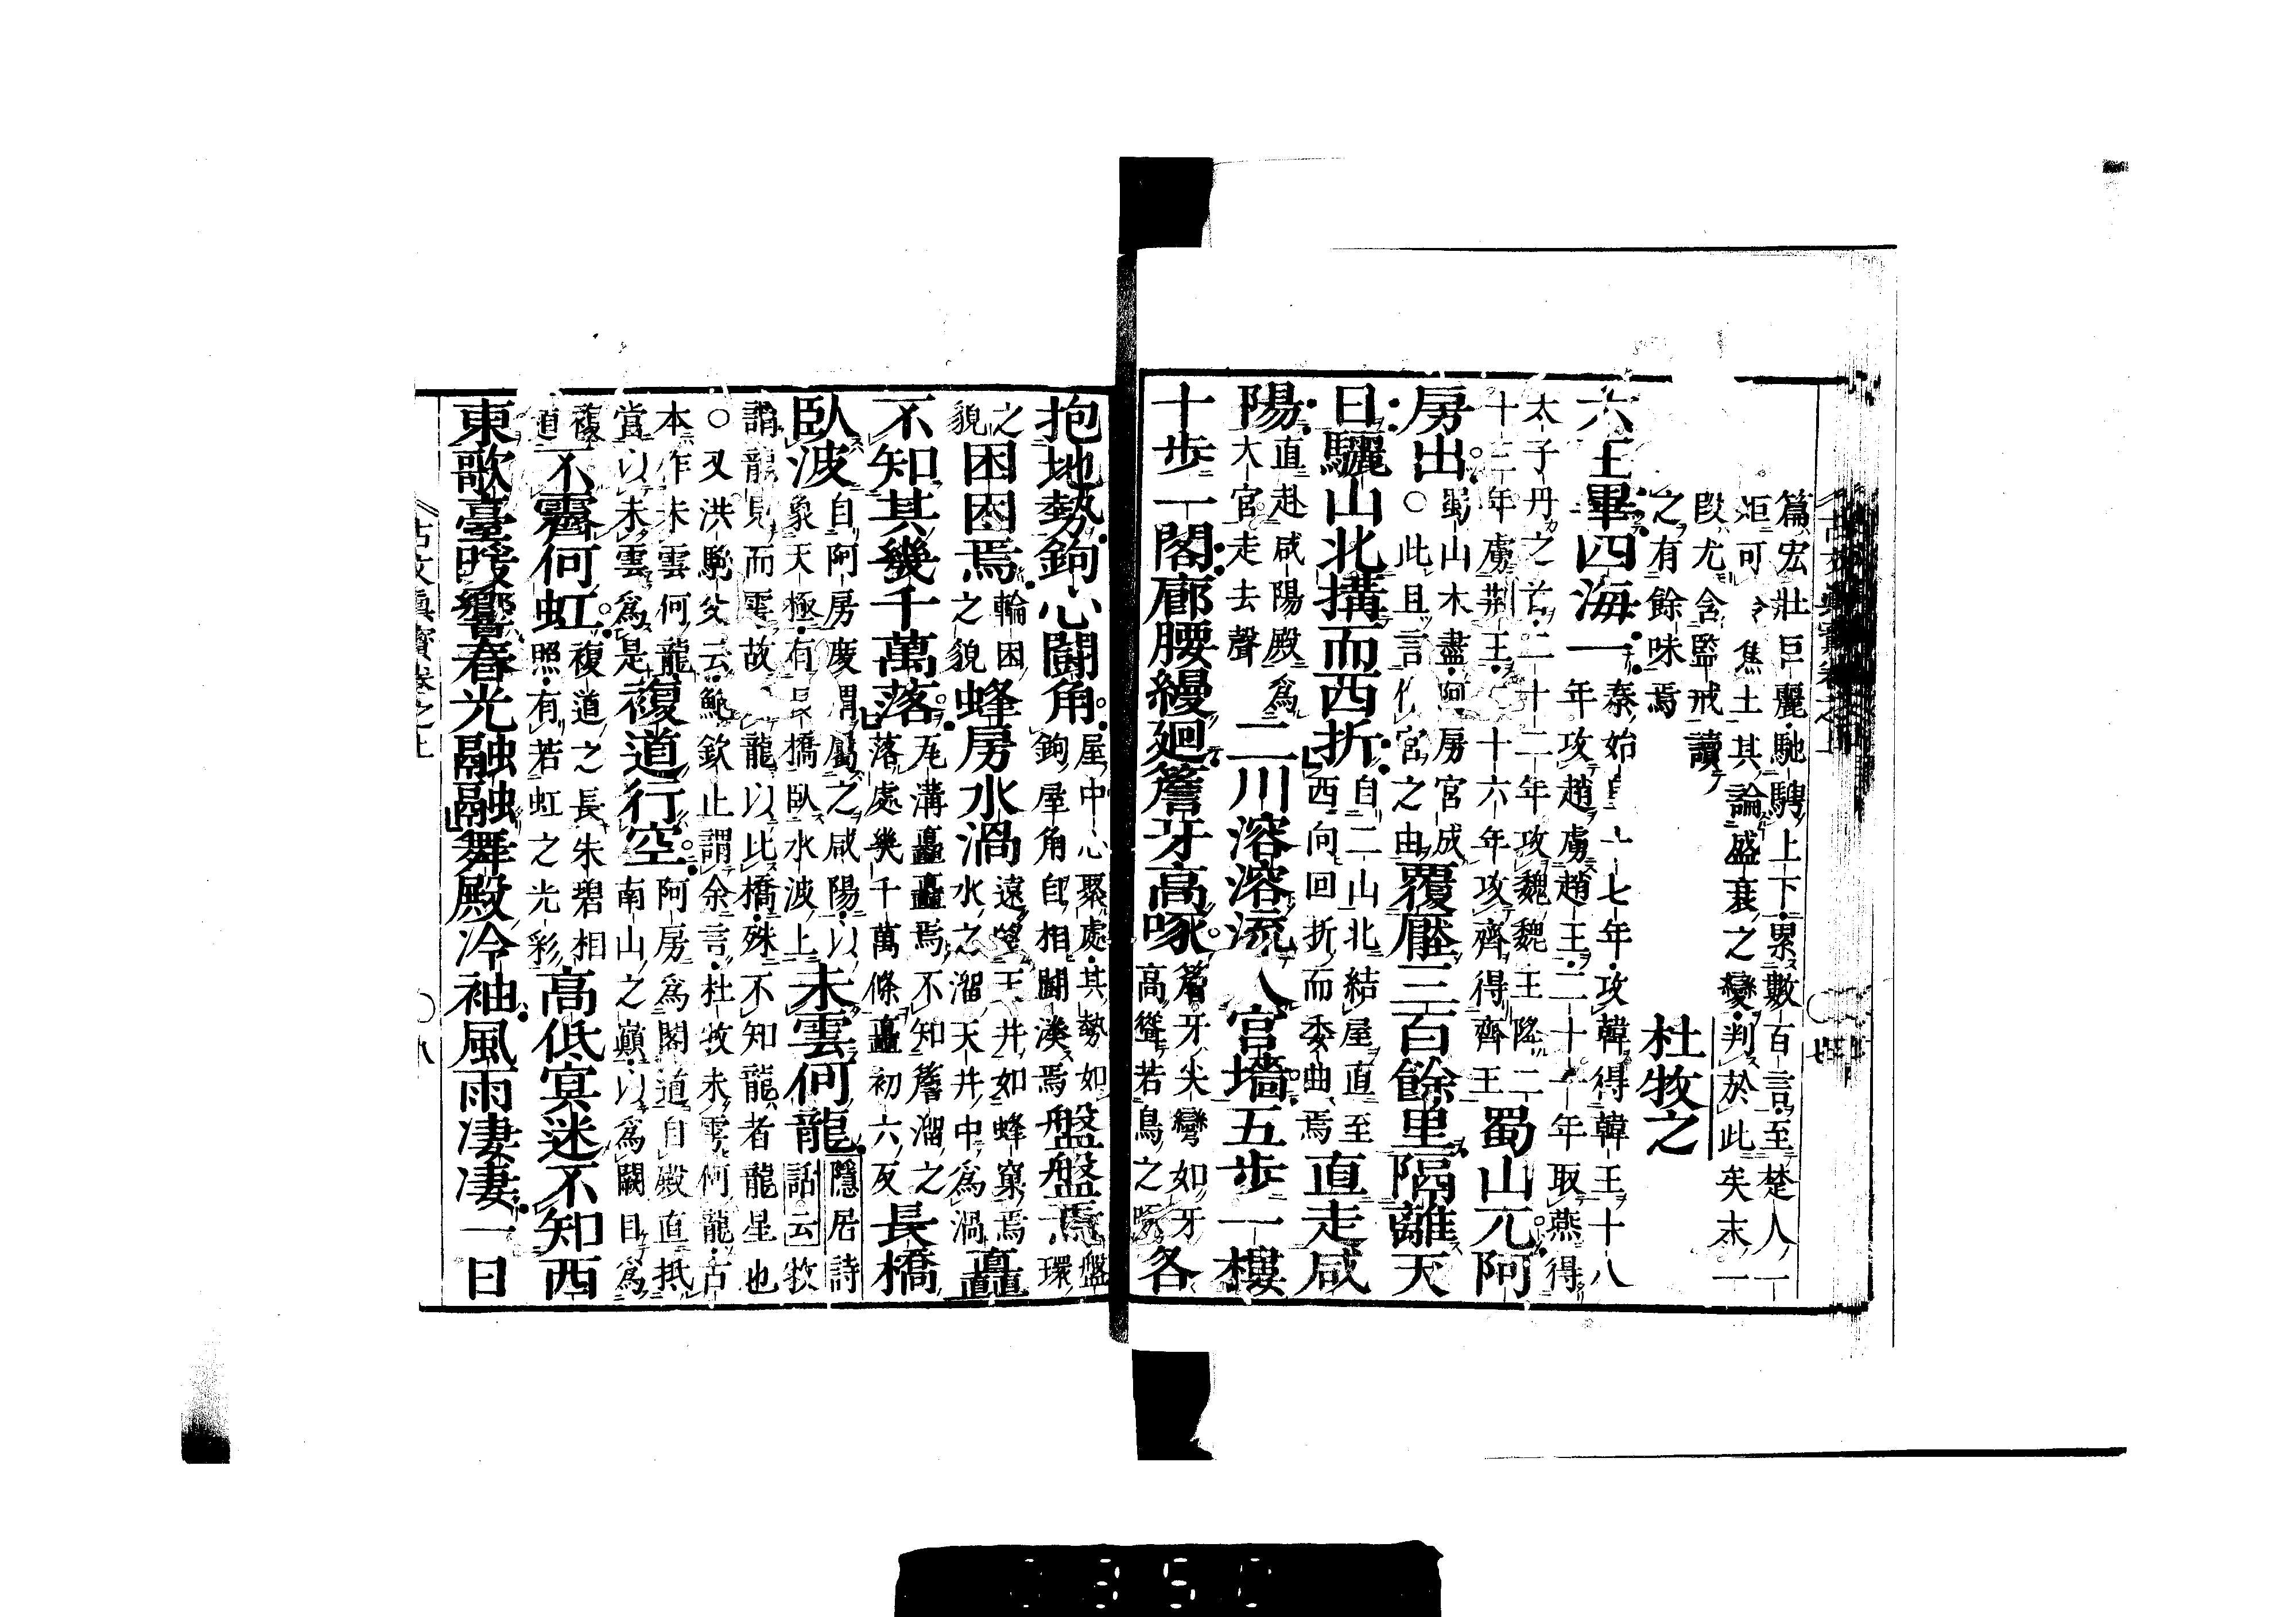 古文真寶卷之上 七
篇宏壯巨麗馳騁上下累數百言至楚人一
炬可 焦土其論盛衰之變判於此矣末一
段尤含監戒讀
之有餘味焉
杜牧之
六王畢四海一
秦始皇十七年攻韓得韓王十八
年攻趙虜趙王二十一年取燕得
太子丹之首二十二年攻魏魏王降二
十三年虜荊王二十六年攻齊得齊王
蜀山兀阿
房出
蜀山木盡阿房宮成
○此且言作宮之由
覆壓三百餘里隔離天
日驪山北搆而西折
自二山北結屋直至
西向回折而委曲焉
直走咸
陽
直赴咸陽殿為
大宮走去聲
二川溶溶流入宮墻五步一樓
十步一閣廊腰縵廻簷牙高啄
簷牙尖彎如牙
高聳若鳥之啄
各
抱地勢鉤心鬪角
屋中心聚處其勢如
鉤屋角自相鬪湊焉
盤盤焉
盤環
之貌
囷囷焉
輪囷
之貌
蜂房水渦
遠望王井如蜂窠焉
水之溜天井中為渦
矗
不知其幾千萬落
瓦溝矗矗焉不知簷溜之
落處幾千萬條矗初六反
長橋
臥波
自阿房度渭屬之咸陽以
象天極有長橋臥水波上
未雲何龍
隱居詩
話云牧
謂龍見而雩故 龍以比橋殊不知龍者龍星也
○又洪駒父云鮑欽止謂余言杜牧未雩何龍古
本作未雲何龍
當以未雲為是
複道行空
阿房為閣道自殿直抵
南山之巔以為闕目為
複道
不霽何虹
複道之長朱碧相
照有若虹之光彩
高低冥迷不知西
東歌臺暖響春光融融舞殿冷袖風雨凄凄一日
古文真寶卷之上 八